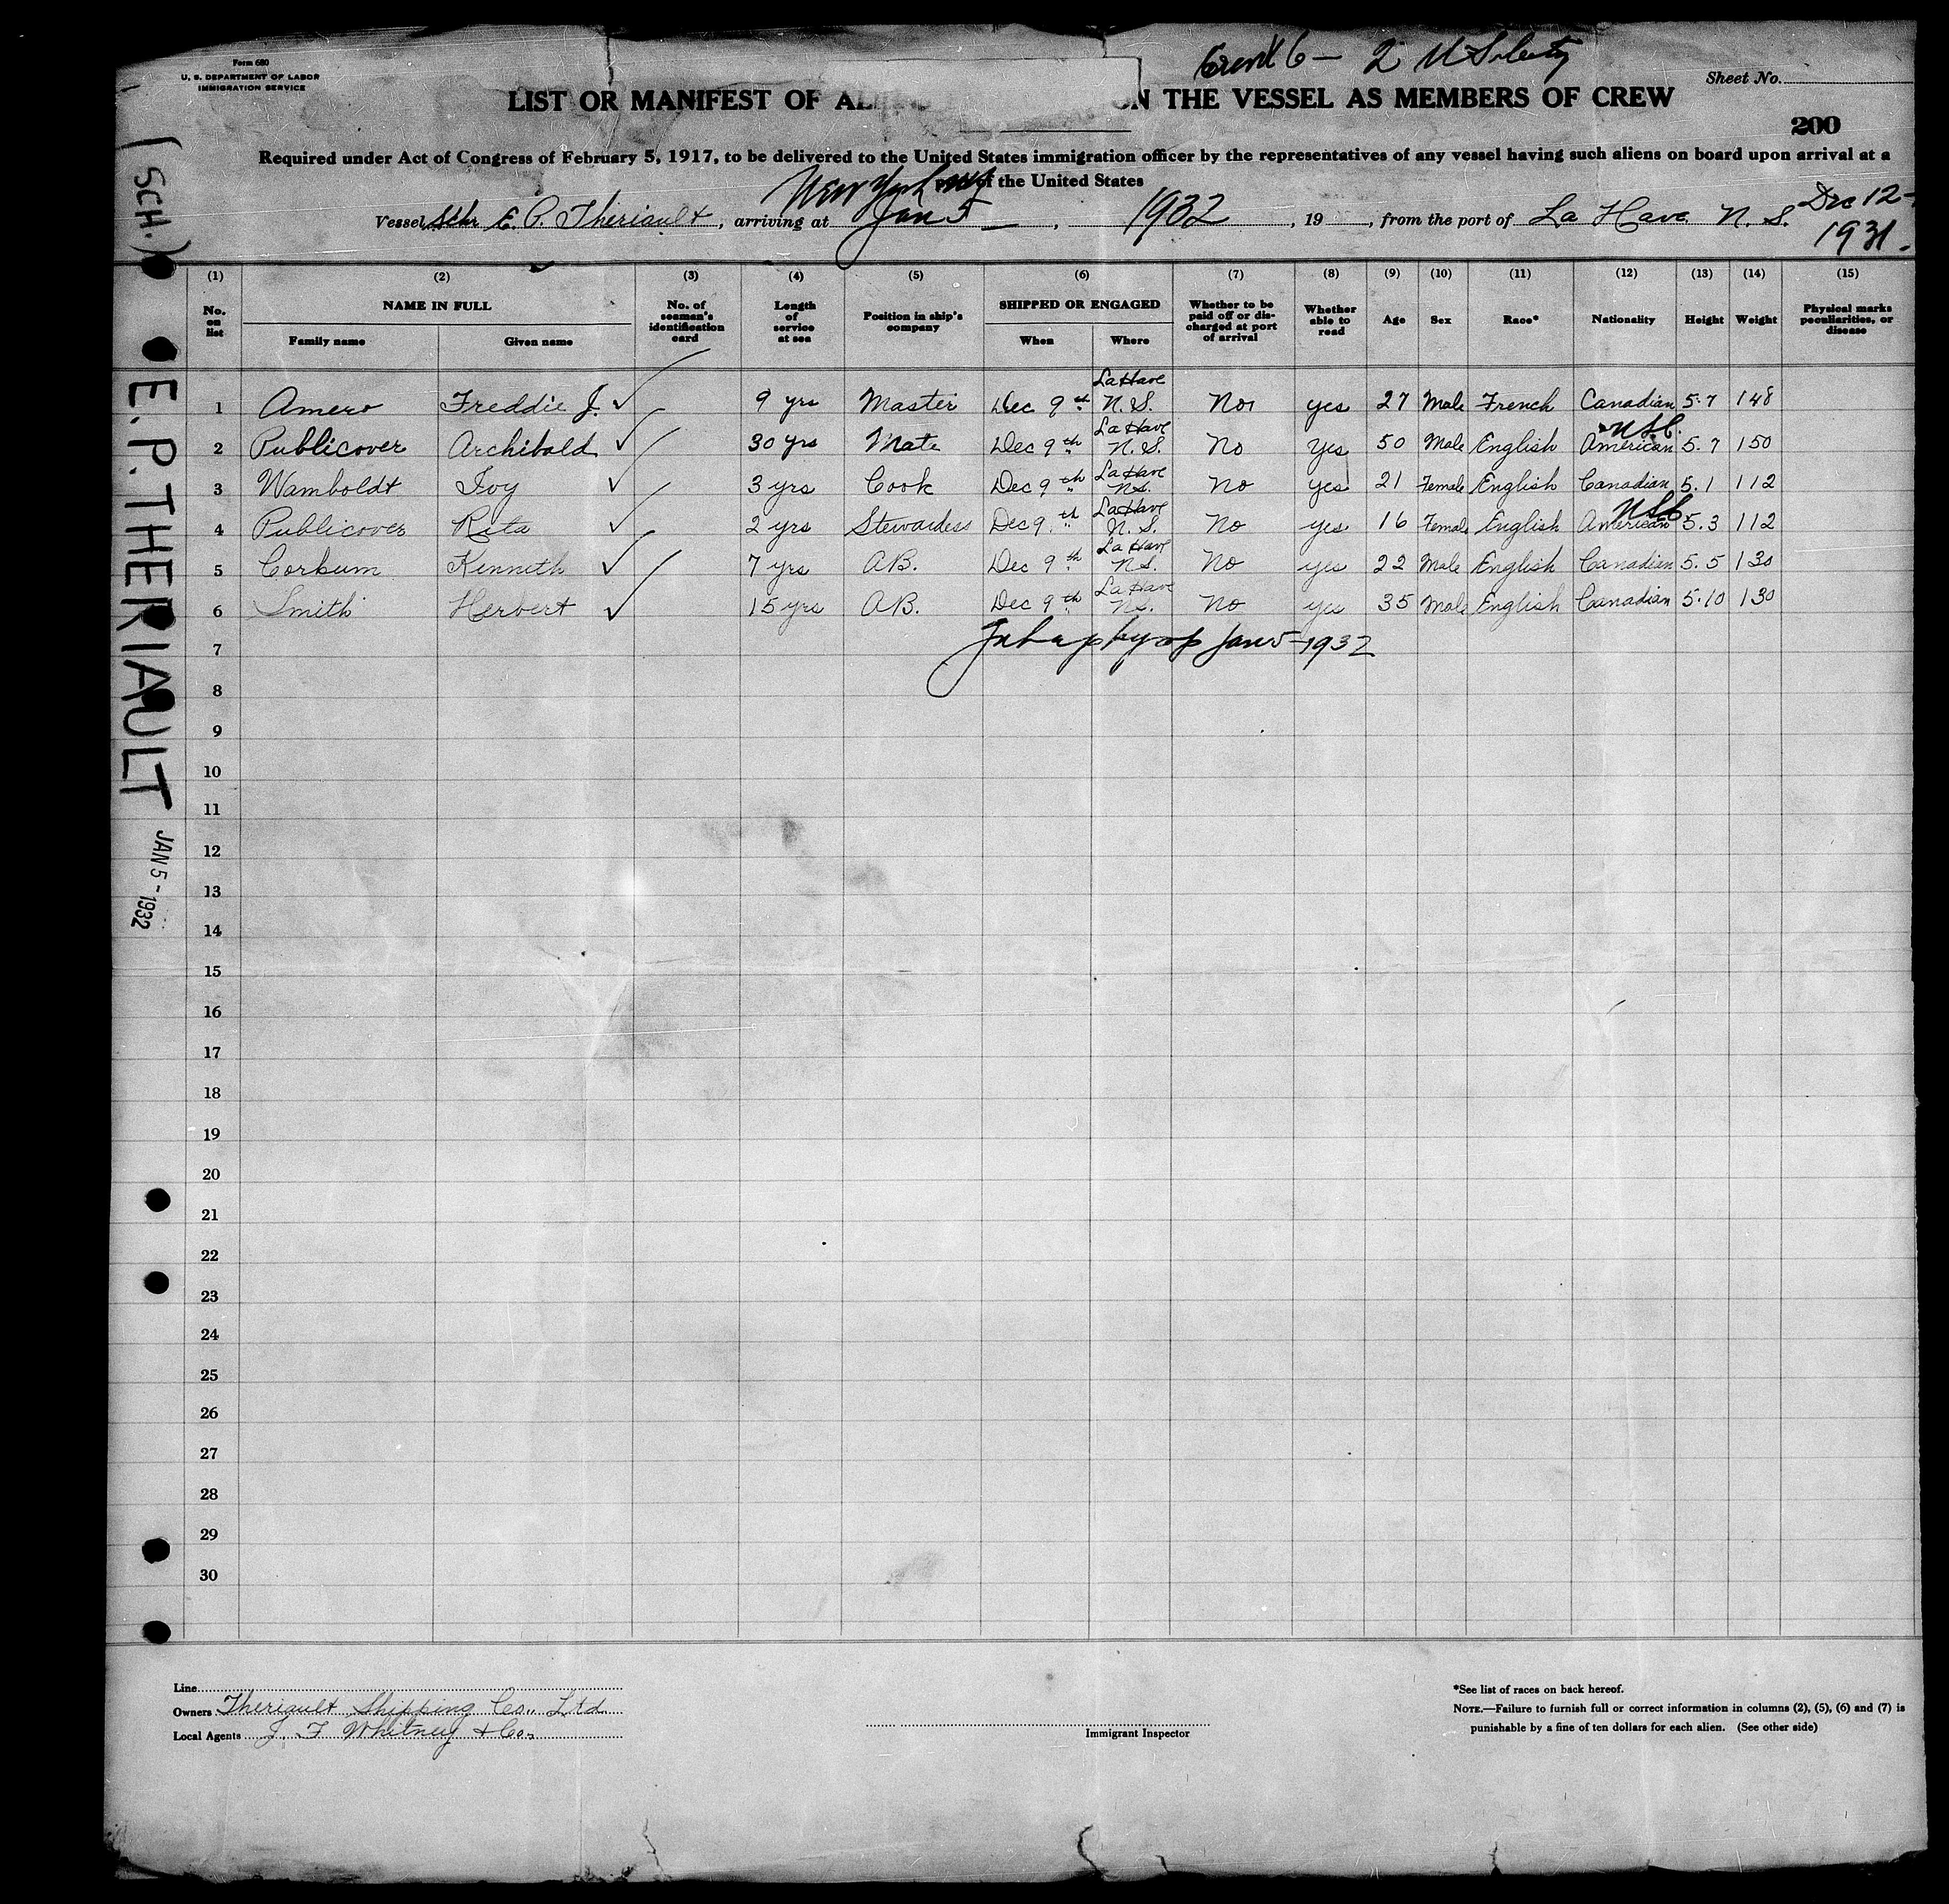 Form 680
U. S. DEPARTMENT OF LABOR
IMMIGRATION SERVICE
6 — 2
Sheet No.
LIST OR MANIFEST OF ALIENS ON THE VESSEL AS MEMBERS OF CREW
200
Required under Act of Congress of February 5, 1917, to be delivered to the United States immigration officer by the representatives of any vessel having such aliens on board upon arrival at a
port of the United States
New York
Vessel Schr E. P. Theriault, arriving at Jan 5, 1932, 19, from the port of La Have N. S. Dec 12-
1931.
(SCH.) E. P. THERIAULT JAN 5 - 1932
(1) (2) (3) (4) (5) (6) (7) (8) (9) (10) (11) (12) (13) (14) (15)
No. on list NAME IN FULL Family name Given name No. of seaman's identification card Length of service at sea Position in ship's company SHIPPED OR ENGAGED When Where Whether to be paid off or discharged at port of arrival Whether able to read Age Sex Race* Nationality Height Weight Physical marks peculiarities, or disease
1 Amero Freddie J. 9 yrs Master Dec 9th La Have N. S. No yes 27 Male French Canadian 5.7 148
2 Publicover Archibald 30 yrs Mate Dec 9th La Have N. S. No Yes 50 Male English American USC. 5.7 150
3 Wamboldt Ivy 3 yrs Cook Dec 9th La Have N.S. No yes 21 Female English Canadian 5.1 112
4 Publicover Rita 2 yrs Stewardess Dec 9th La Have N. S. No yes 16 Female English American USC 5.3 112
5 Corkum Kenneth 7 yrs A.B. Dec 9th La Have N.S. No yes 22 Male English Canadian 5.5 130
6 Smith Herbert 15 yrs A.B. Dec 9th La Have N.S. No yes 35 Male English Canadian 5.10 130
7 Jan 5-1932
8
9
10
11
12
13
14
15
16
17
18
19
20
21
22
23
24
25
26
27
28
29
30
Line
Owners Theriault Shipping Co., Ltd
Local Agents J. F Whitney & Co.,
Immigrant Inspector
*See list of races on back hereof.
NOTE.—Failure to furnish full or correct information in columns (2), (5), (6) and (7) is
punishable by a fine of ten dollars for each alien. (See other side)